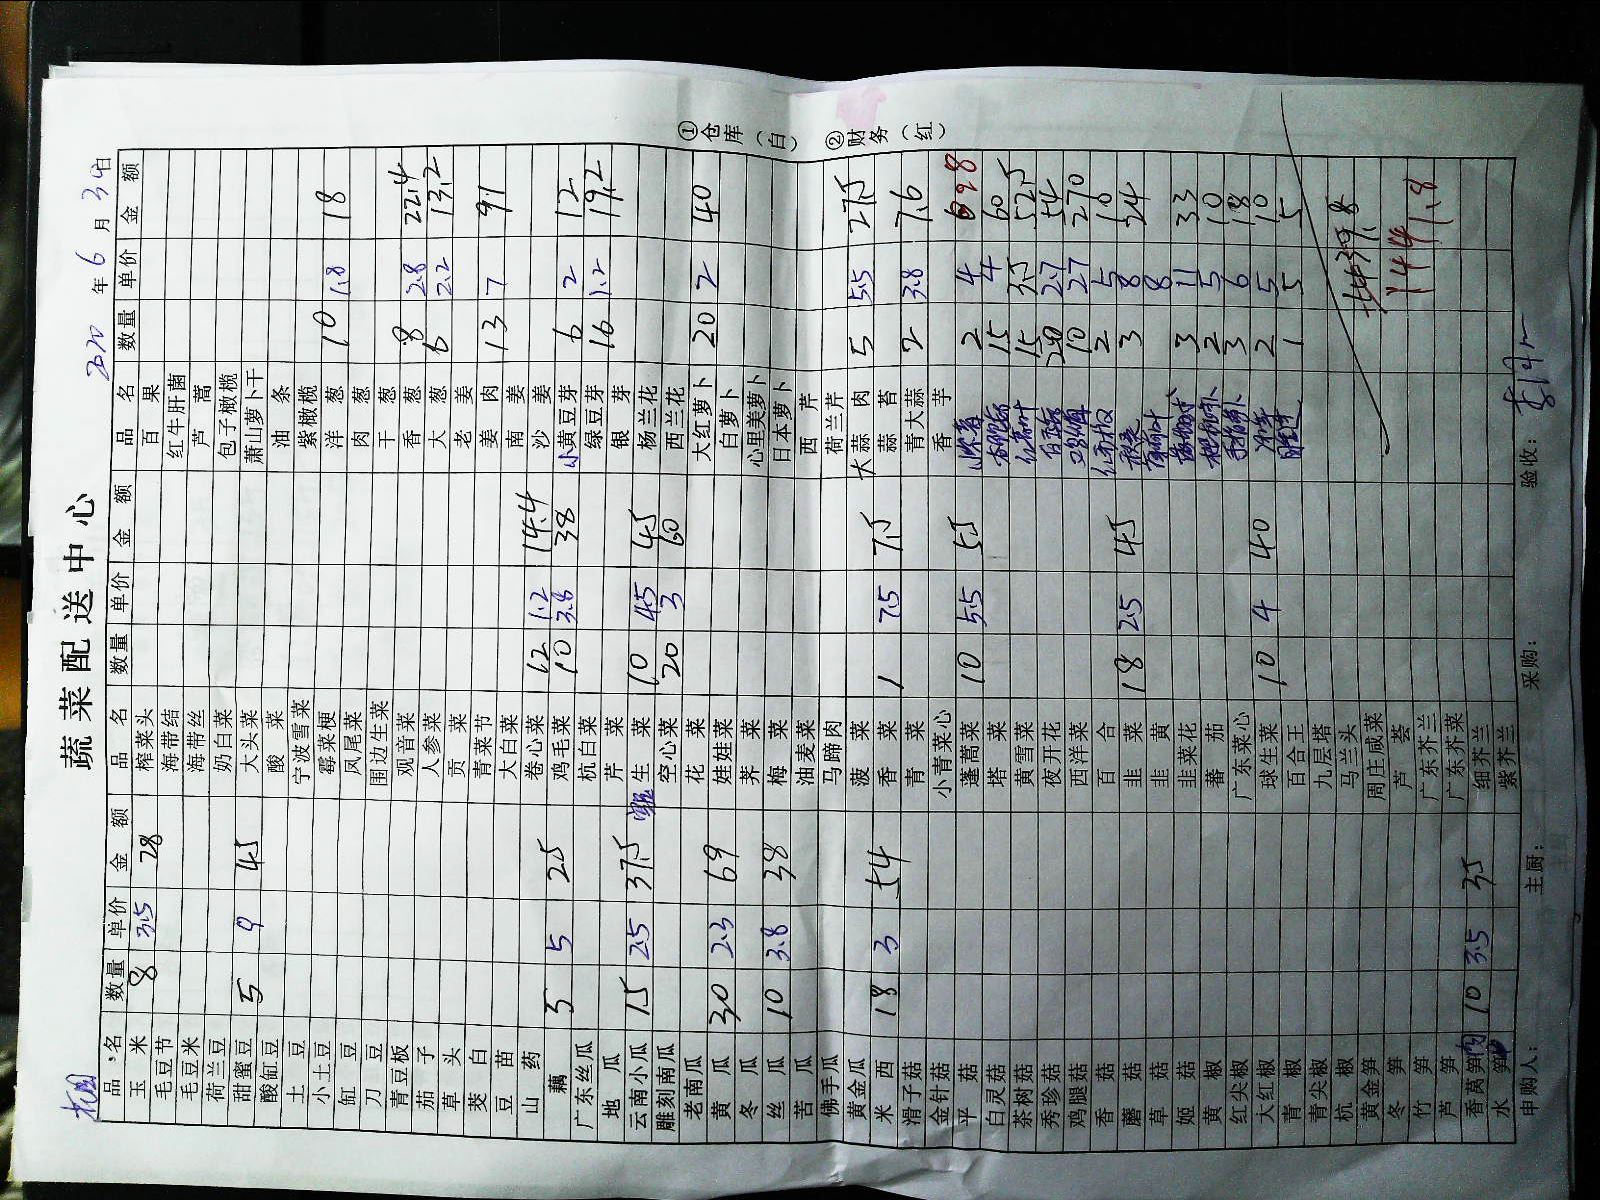 蔬菜配送中心
2020年6月3日
品名 数量 单价 金额 品名 数量 单价 金额 品名 数量 单价 金额
玉米 8 3.5 28 榨菜头 百果
毛豆节 海带结 红牛肝菌
毛豆米 海带丝 芦蒿
荷兰豆 奶白菜 包子橄榄
甜蜜豆 5 9 45 大头菜 萧山萝卜干
酸缸豆 酸菜 油条
土豆 宁波雪菜 紫橄榄
小土豆 霉菜梗 洋葱 10 1.8 18
缸豆 凤尾菜 肉葱
刀豆 围边生菜 干葱
青豆板 观音菜 香葱 8 2.8 22.4
茄子 人参菜 大葱 6 2.2 13.2
草头 贡菜 老姜
茭白 青菜节 姜肉 13 7 91
豆苗 大白菜 南姜
山药 卷心菜 12 1.2 14.4 沙姜
藕 5 5 25 鸡毛菜 10 3.8 38 小黄豆芽 6 2 12
广东丝瓜 杭白菜 绿豆芽 16 1.2 19.2
地瓜 芹菜 银芽
云南小瓜 15 2.5 37.5 生菜 10 4.5 45 杨兰花
雕刻南瓜 空心菜 20 3 60 西兰花
老南瓜 花菜 大红萝卜 20 2 40
黄瓜 30 2.3 69 娃娃菜 白萝卜
冬瓜 荠菜 心里美萝卜
丝瓜 10 3.8 38 梅菜 日本萝卜
苦瓜 油麦菜 西芹
佛手瓜 马蹄肉 荷兰芹
黄金瓜 菠菜 大蒜肉 5 5.5 27.5
米西 18 3 54 香菜 1 7.5 7.5 蒜苔
滑子菇 青菜 青大蒜 2 3.8 7.6
金针菇 小青菜心 香芋
平菇 蓬蒿菜 10 5.5 55 2 4
白灵菇 塔菜 15 4 60
茶树菇 黄雪菜 15 3.5 52.5
秀珍菇 夜开花 20 2.7 54
鸡腿菇 西洋菜 10 27 270
香菇 百合 2 5 10
蘑菇 韭菜 18 2.5 45 3 8 24
草菇 韭黄 8
姬菇 韭菜花 3 11 33
黄椒 蕃茄 2 5 10
红尖椒 广东菜心 3 6 18
大红椒 球生菜 10 4 40 2 5 10
青椒 百合王 1 5 5
青尖椒 九层塔
杭椒 马兰头
黄金笋 周庄咸菜
冬笋 芦荟 1441.8
竹笋 广东芥兰
芦笋 广东芥菜
香莴笋肉 10 3.5 35 细芥兰
水笋 紫芥兰
申购人： 主厨： 采购： 验收：
①仓库（白） ②财务（红）